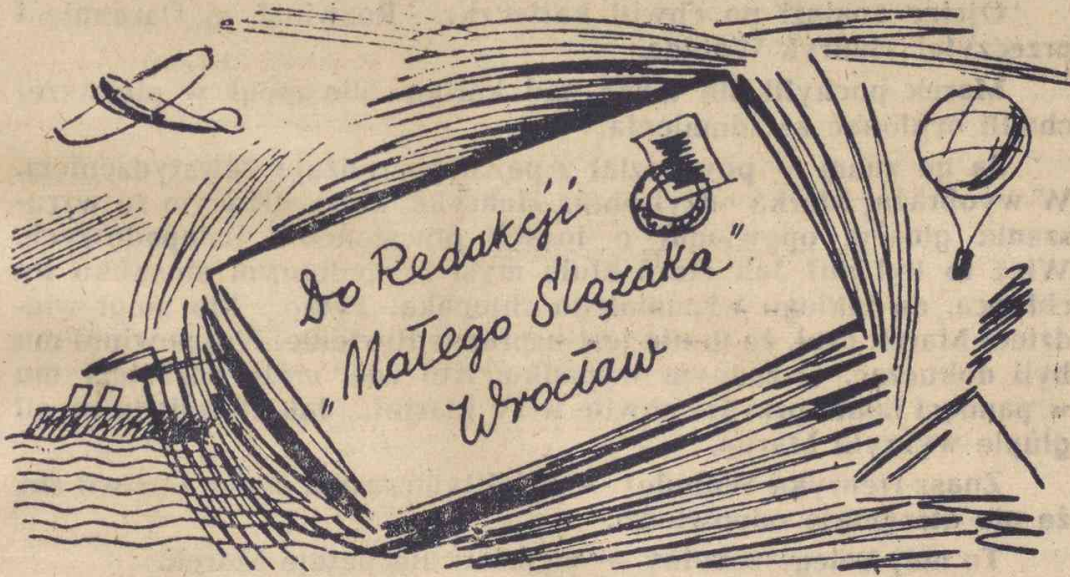 Do Redakcji
„Małego Slązaka”
Wrocław